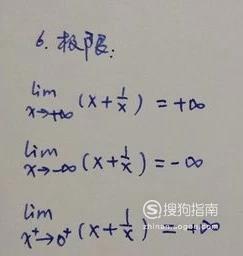 6. 极限:
lim (x+1/x) = +∞
x→+∞
lim (x+1/x) = -∞
x→-∞
lim (x+1/x) = +∞
x⁺→0⁺
搜狗指南
zhinan.sogou.com